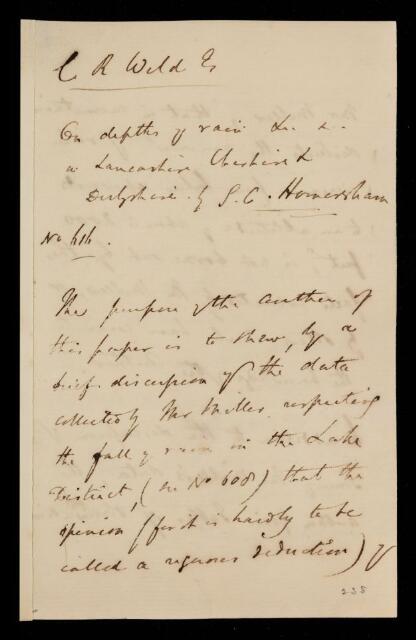 C R Weld Esq
On depths of rain &c. &c.
in Lancashire Cheshire &
Derbyshire by S. C. Homersham
No 616.
The purpose of the author of
this paper is to shew, by a
brief discussion of the data
collected by Mr Miller respecting
the fall of rain in the Lake
District, (in No 608) that the
opinion (for it is hardly to be
called a rigorous deduction) of
238